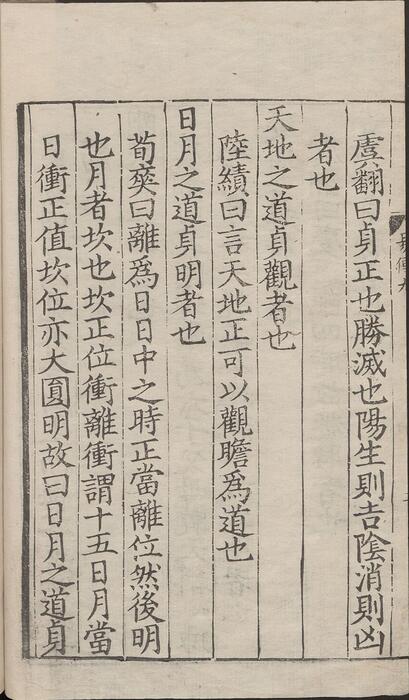 虞翻曰貞正也勝滅也陽生則吉陰消則凶
者也
天地之道貞觀者也
陸績曰言天地正可以觀瞻為道也
日月之道貞明者也
荀爽曰離為日日中之時正當離位然後明
也月者坎也坎正位衝離衝謂十五日月當
日衝正值坎位亦大圓明故曰日月之道貞